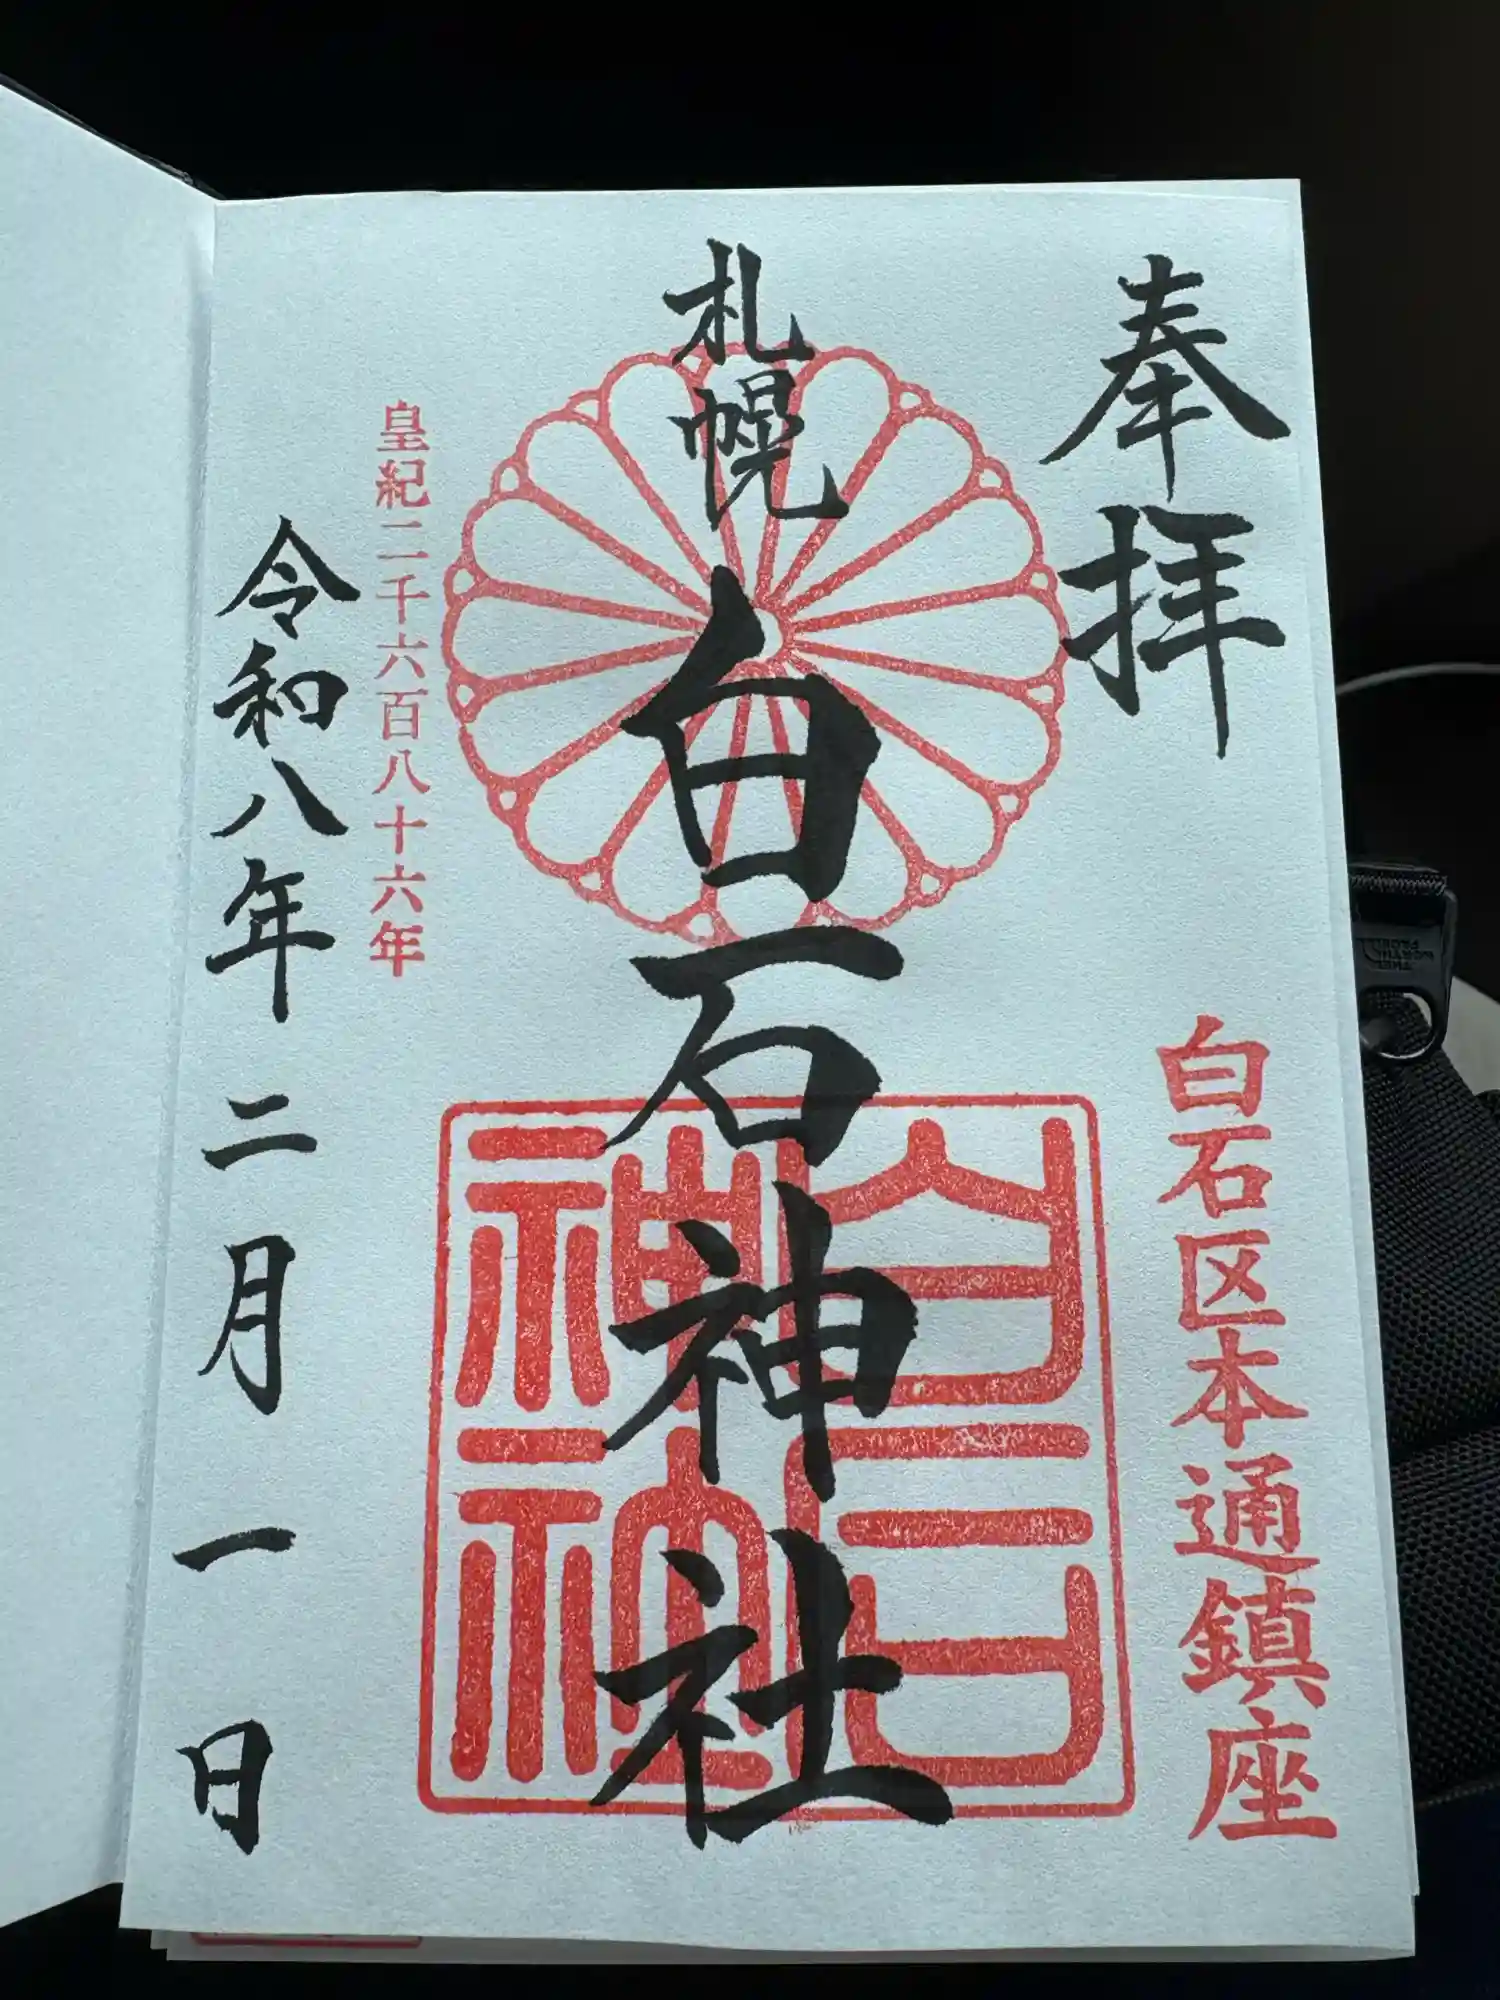 奉拝
白石区本通鎮座
札幌
白石神社
白石神社
皇紀二千六百八十六年
令和八年二月一日